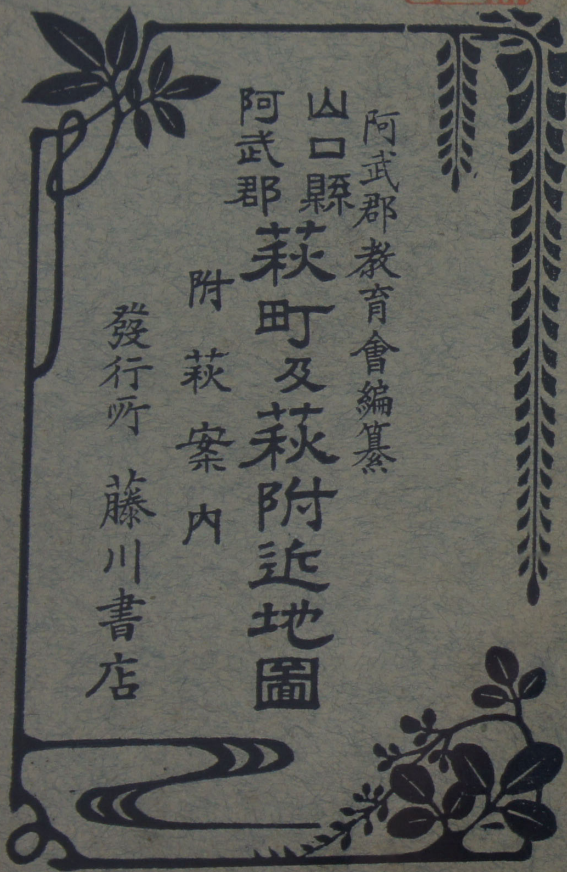 阿武郡教育會編纂
山口縣
阿武郡
萩町及萩附近地圖
附萩案内
發行所 藤川書店